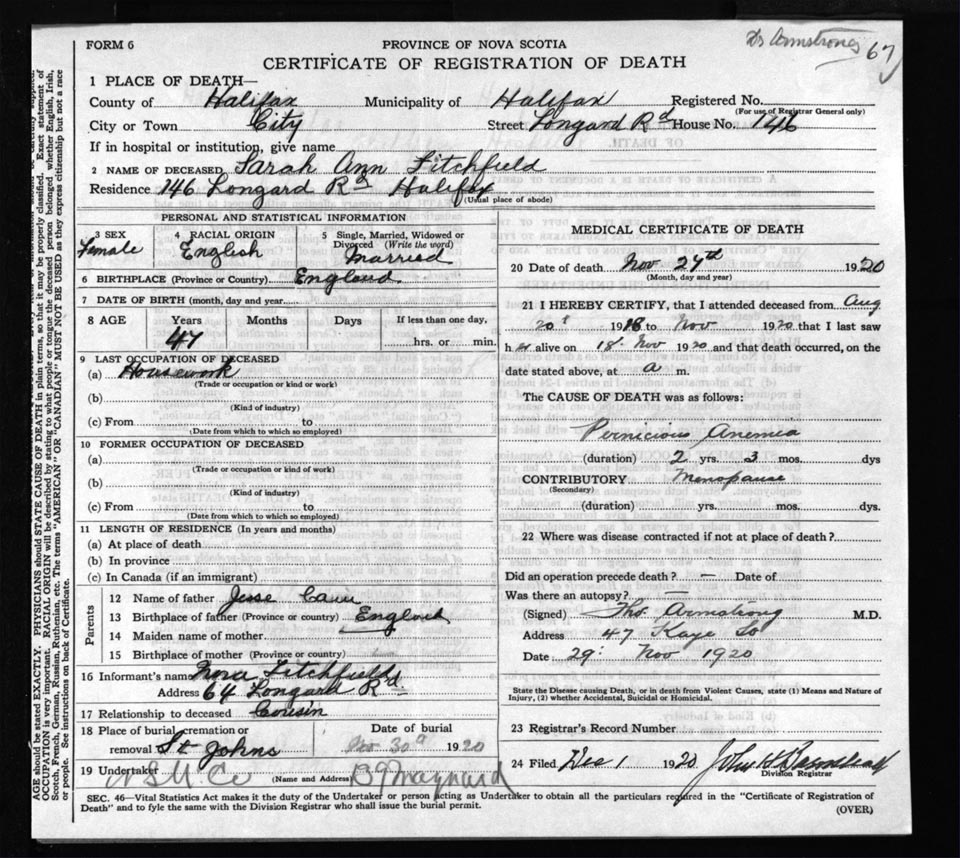 Dr Armstrong 67
FORM 6
PROVINCE OF NOVA SCOTIA
CERTIFICATE OF REGISTRATION OF DEATH
1 PLACE OF DEATH—
County of Halifax Municipality of Halifax Registered No.
(For use of Registrar General only)
City or Town City Street Longard Rd House No. 146
If in hospital or institution, give name
2 NAME OF DECEASED Sarah Ann Litchfield
Residence 146 Longard Rd Halifax
(Usual place of abode)
PERSONAL AND STATISTICAL INFORMATION
3 SEX Female
4 RACIAL ORIGIN English
5 Single, Married, Widowed or Divorced (Write the word) Married
6 BIRTHPLACE (Province or Country) England
7 DATE OF BIRTH (month, day and year)
8 AGE Years Months Days If less than one day,
47 hrs. or min.
9 LAST OCCUPATION OF DECEASED
(a) Housework
(Trade or occupation or kind or work)
(b)
(Kind of industry)
(c) From to
(Date from which to which so employed)
10 FORMER OCCUPATION OF DECEASED
(a)
(Trade or occupation or kind of work)
(b)
(Kind of industry)
(c) From to
(Date from which to which so employed)
11 LENGTH OF RESIDENCE (In years and months)
(a) At place of death
(b) In province
(c) In Canada (if an immigrant)
Parents
12 Name of father Jesse
13 Birthplace of father (Province or country) England
14 Maiden name of mother
15 Birthplace of mother (Province or country)
16 Informant's name Nora Litchfield
Address 64 Longard Rd
17 Relationship to deceased Cousin
18 Place of burial, cremation or removal St Johns
Date of burial Nov 30 1920
19 Undertaker (Name and Address)
MEDICAL CERTIFICATE OF DEATH
20 Date of death Nov 27th 1920
(Month, day and year)
21 I HEREBY CERTIFY, that I attended deceased from Aug
20th 1918 to Nov 1920 that I last saw
her alive on 18th Nov 1920 and that death occurred, on the
date stated above, at a m.
The CAUSE OF DEATH was as follows:
Pernicious Anemia
(duration) 2 yrs. 3 mos. dys
CONTRIBUTORY Menopause
(Secondary)
(duration) yrs. mos. dys.
22 Where was disease contracted if not at place of death?
Did an operation precede death? — Date of
Was there an autopsy? —
(Signed) Tho. Armstrong M.D.
Address 47 Kaye St
Date 29th Nov 1920
State the Disease causing Death, or in death from Violent Causes, state (1) Means and Nature of
Injury, (2) whether Accidental, Suicidal or Homicidal.
23 Registrar's Record Number
24 Filed Dec 1 1920
Division Registrar
SEC. 46—Vital Statistics Act makes it the duty of the Undertaker or person acting as Undertaker to obtain all the particulars required in the "Certificate of Registration of
Death" and to fyle the same with the Division Registrar who shall issue the burial permit.
(OVER)
AGE should be stated EXACTLY. PHYSICIANS should STATE CAUSE OF DEATH in plain terms, so that it may be properly classified. Exact statement of
OCCUPATION is very important. RACIAL ORIGIN will be described by stating to what people or tongue the deceased person belonged whether English, Irish,
Scotch, French, German, Russian, Ruthenian, etc. The terms "AMERICAN" OR "CANADIAN" MUST NOT BE USED as they express citizenship but not a race
or people. See instructions on back of Certificate.